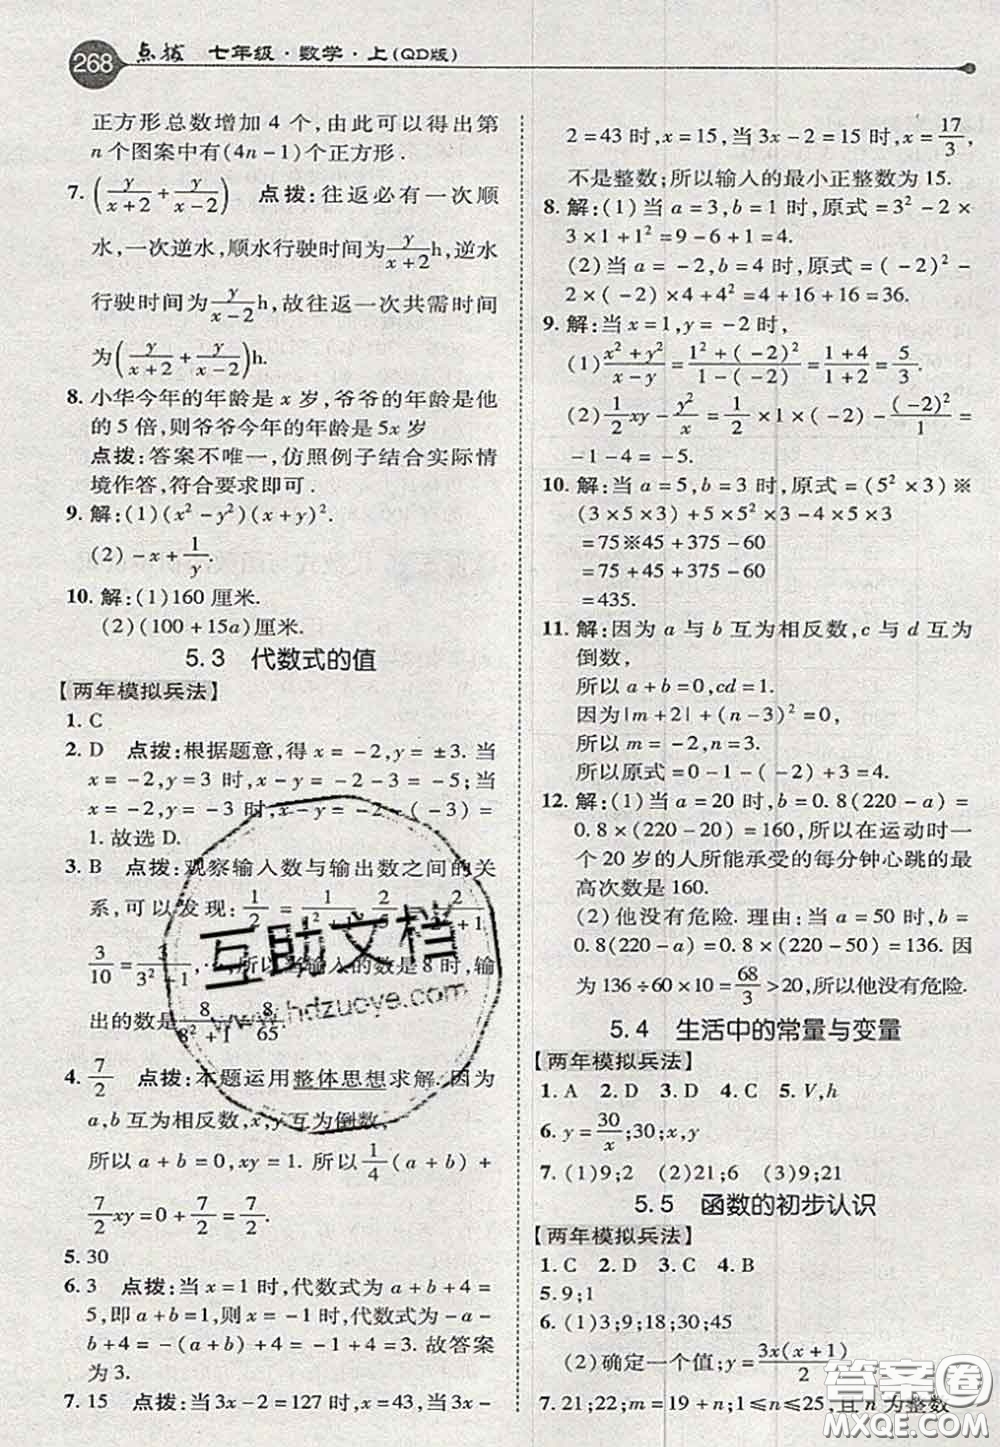 268 点拨 七年级·数学·上(QD版)
正方形总数增加 4 个，由此可以得出第
n 个图案中有(4n-1)个正方形.
7. (y/(x+2) + y/(x-2)) 点拨:往返必有一次顺
水,一次逆水,顺水行驶时间为 y/(x+2) h,逆水
行驶时间为 y/(x-2) h,故往返一次共需时间
为(y/(x+2) + y/(x-2))h.
8. 小华今年的年龄是 x 岁,爷爷的年龄是他
的 5 倍,则爷爷今年的年龄是 5x 岁
点拨:答案不唯一,仿照例子结合实际情
境作答,符合要求即可.
9. 解:(1)(x²-y²)(x+y)².
(2)-x+1/y.
10. 解:(1)160 厘米.
(2)(100+15a)厘米.
5.3 代数式的值
【两年模拟兵法】
1. C
2. D 点拨:根据题意,得 x=-2,y=±3. 当
x=-2,y=3 时,x-y=-2-3=-5;当
x=-2,y=-3 时,x-y=-2-(-3)=
1. 故选 D.
3. B 点拨:观察输入数与输出数之间的关
系,可以发现:1/2=1/(1²+1),2/5=2/(2²+1),
3/10=3/(3²+1),…,所以当输入的数是 8 时,输
出的数是 8/(8²+1)=8/65.
4. 7/2 点拨:本题运用整体思想求解.因为
a,b 互为相反数,x,y 互为倒数,
所以 a+b=0,xy=1. 所以 1/4(a+b)+
7/2xy=0+7/2=7/2.
5. 30
6. 3 点拨:当 x=1 时,代数式为 a+b+4=
5,即 a+b=1,则 x=-1 时,代数式为-a-
b+4=-(a+b)+4=-1+4=3. 故答案
为 3.
7. 15 点拨:当 3x-2=127 时,x=43,当 3x-
2=43 时,x=15,当 3x-2=15 时,x=17/3,
不是整数;所以输入的最小正整数为 15.
8. 解:(1)当 a=3,b=1 时,原式=3²-2×
3×1+1²=9-6+1=4.
(2)当 a=-2,b=4 时,原式=(-2)²-
2×(-2)×4+4²=4+16+16=36.
9. 解:当 x=1,y=-2 时,
(1)(x²+y²)/(x-y)=(1²+(-2)²)/(1-(-2))=(1+4)/(1+2)=5/3.
(2)1/2xy-y²/x=1/2×1×(-2)-(-2)²/1=
-1-4=-5.
10. 解:当 a=5,b=3 时,原式=(5²×3)※
(3×5×3)+5×5×5×3
=75※45+375-60
=75+45+375-60
=435.
11. 解:因为 a 与 b 互为相反数,c 与 d 互为
倒数,
所以 a+b=0,cd=1.
因为|m+2|+(n-3)²=0,
所以 m=-2,n=3.
所以原式=0-1-(-2)³=7.
12. 解:(1)当 a=20 时,b=0.8(220-a)=
0.8×(220-20)=160,所以在运动时一
个 20 岁的人所能承受的每分钟心跳的最
高次数是 160.
(2)他没有危险. 理由:当 a=50 时,b=
0.8(220-a)=0.8×(220-50)=136. 因
为 136÷60×10=68/3>20,所以他没有危险.
5.4 生活中的常量与变量
【两年模拟兵法】
1. A 2. D 3. D 4. C 5. V,h
6. y=30/x;30;x,y
7. (1)9;2 (2)21;6 (3)9;21
5.5 函数的初步认识
【两年模拟兵法】
1. C 2. D 3. D 4. B
5. 9;1
6. (1)3;9;18;30;45
(2)确定一个值;y=3x(x+1)/2
7. 21;22;m=19+n;1≤n≤25,且 n 为整数
互助文档
www.hdzuoye.com
答案圈
MXQE.COM